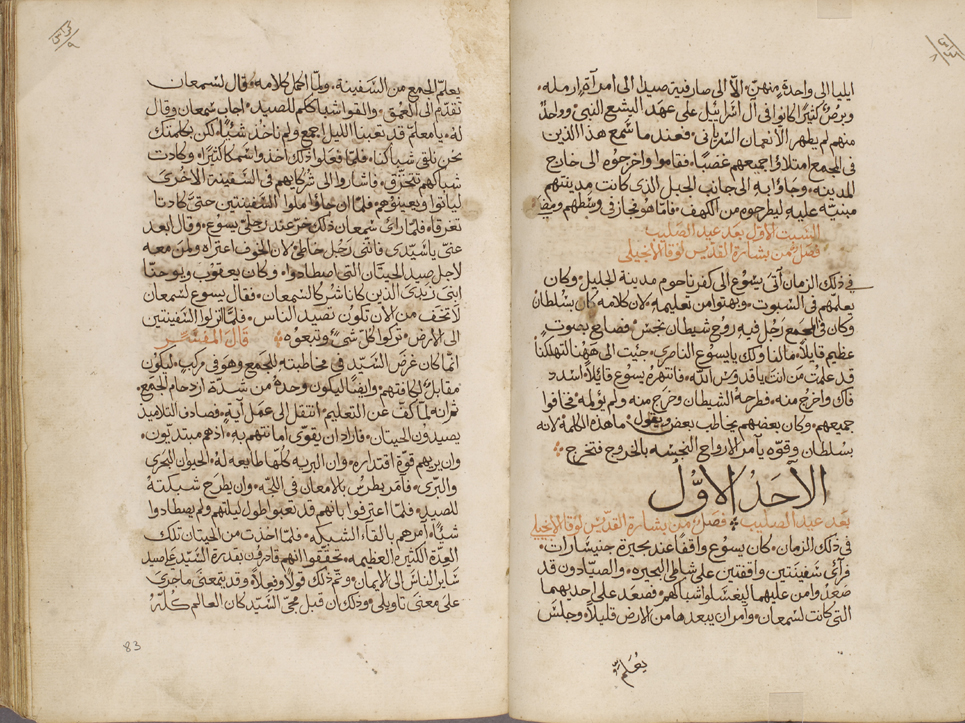 ايليا الى واحدة منهن الا الى صارفية صيدا الى امراة ارمله
وبرص كثيرا كانوا في آل اسرائيل على عهد اليشع النبي وواحد
منهم لم يطهر الا نعمان السرياني فعند ما سمع هذا الذين
في المجمع امتلاوا جميعهم غضبا فقاموا واخرجوه الى خارج
المدينه وجاوا به الى جانب الجبل الذى كانت مدينتهم
مبنيه عليه ليطرحوه من الكهف فاما هو فجاز في وسطهم ومضى
السبت الاول بعد عيد الصليب
فصل من بشارة القديس لوقا الانجيلي
في ذلك الزمان اتى يسوع الى كفرناحوم مدينة الجليل وكان
يعلمهم في السبوت وبهتوا من تعليمه لان كلامه كان بسلطان
وكان في المجمع رجل فيه روح شيطان نجس فصاح بصوت
عظيم قايلا مالنا ولك يا يسوع الناصري جيت الى ههنا لتهلكنا
قد علمت من انت يا قدوس الله فانتهره يسوع قايلا اسدد
فاك واخرج منه فطرحه الشيطان وخرج منه ولم يؤلمه فخافوا
جميعهم وكان بعضهم يخاطب بعض ويقول ما هذه الكلمة لانه
بسلطان وقوه يامر الارواح النجسه بالخروج فتخرج
الاحد الاول
بعد عيد الصليب فصل من بشارة القديس لوقا الانجيلي
في ذلك الزمان كان يسوع واقفا عند بحيرة جنيشارات
فرأى سفينتين واقفتين على شاطى البحيره والصيادون قد
صعدوا من عليهما ليغسلوا شباكهم فصعد على احديهما
التي كانت لسمعان وامر ان يبعدها من الارض قليلا وجلس
يعلم
يعلم الجمع من السفينة ولما اكمل كلامه قال لسمعان
تقدم الى العمق والقوا شباككم للصيد اجاب سمعان وقال
له يا معلم قد تعبنا الليل اجمع ولم ناخذ شيا لكن بكلمتك
نحن نلقي شباكنا فلما فعلوا ذلك اخذوا سمكا كثيرا وكادت
شباكهم تتخرق فاشاروا الى شركايهم في السفينة الاخرى
لياتوا ويعينوهم فلما ان جاؤا ملوا السفينتين حتى كادتا
تغرقا فلما رأى سمعان ذلك خر عند رجلي يسوع وقال ابعد
عني يا سيدى فانني رجل خاطئ لان الخوف اعتراه ولمن معه
لاجل صيد الحيتان التي اصطادوا وكان يعقوب ويوحنا
ابني زبدى الذين كانا شركا لسمعان فقال يسوع لسمعان
لا تخف من الان تكون تصيد الناس فلما انزلوا السفينتين
الى الارض تركوا كل شي وتبعوه قال المفسر
انما كان غرض السيد في مخاطبته للجمع وهو في مركب ليكون
مقابل لكافتهم وايضا ليكون وحده من شدة ازدحام الجمع
ثم انه لما كف عن التعليم انتقل الى عمل آية فصادف التلاميذ
يصيدون الحيتان فاراد ان يقوى امانتهم به اذ هم مبتديون
وان يريهم قوة اقتداره وان البريه كلها طايعه له الحيوان البحرى
والبرى فامر بطرس بالامعان في اللجه وان يطرح شبكته
للصيد فلما اعترفوا بانهم قد تعبوا طول ليلتهم ولم يصطادوا
شيا امرهم بالقاء الشبكه فلما اخذت من الحيتان تلك
العدة الكثيرة العظيمه تحققوا انهم قادرون بقدرة السيد على صيد
ساير الناس الى الايمان وتم ذلك قولا وفعلا وقد يتمعنى ماجرى
على معنى تاويلى وذلك ان قبل مجى السيد كان العالم كله
83